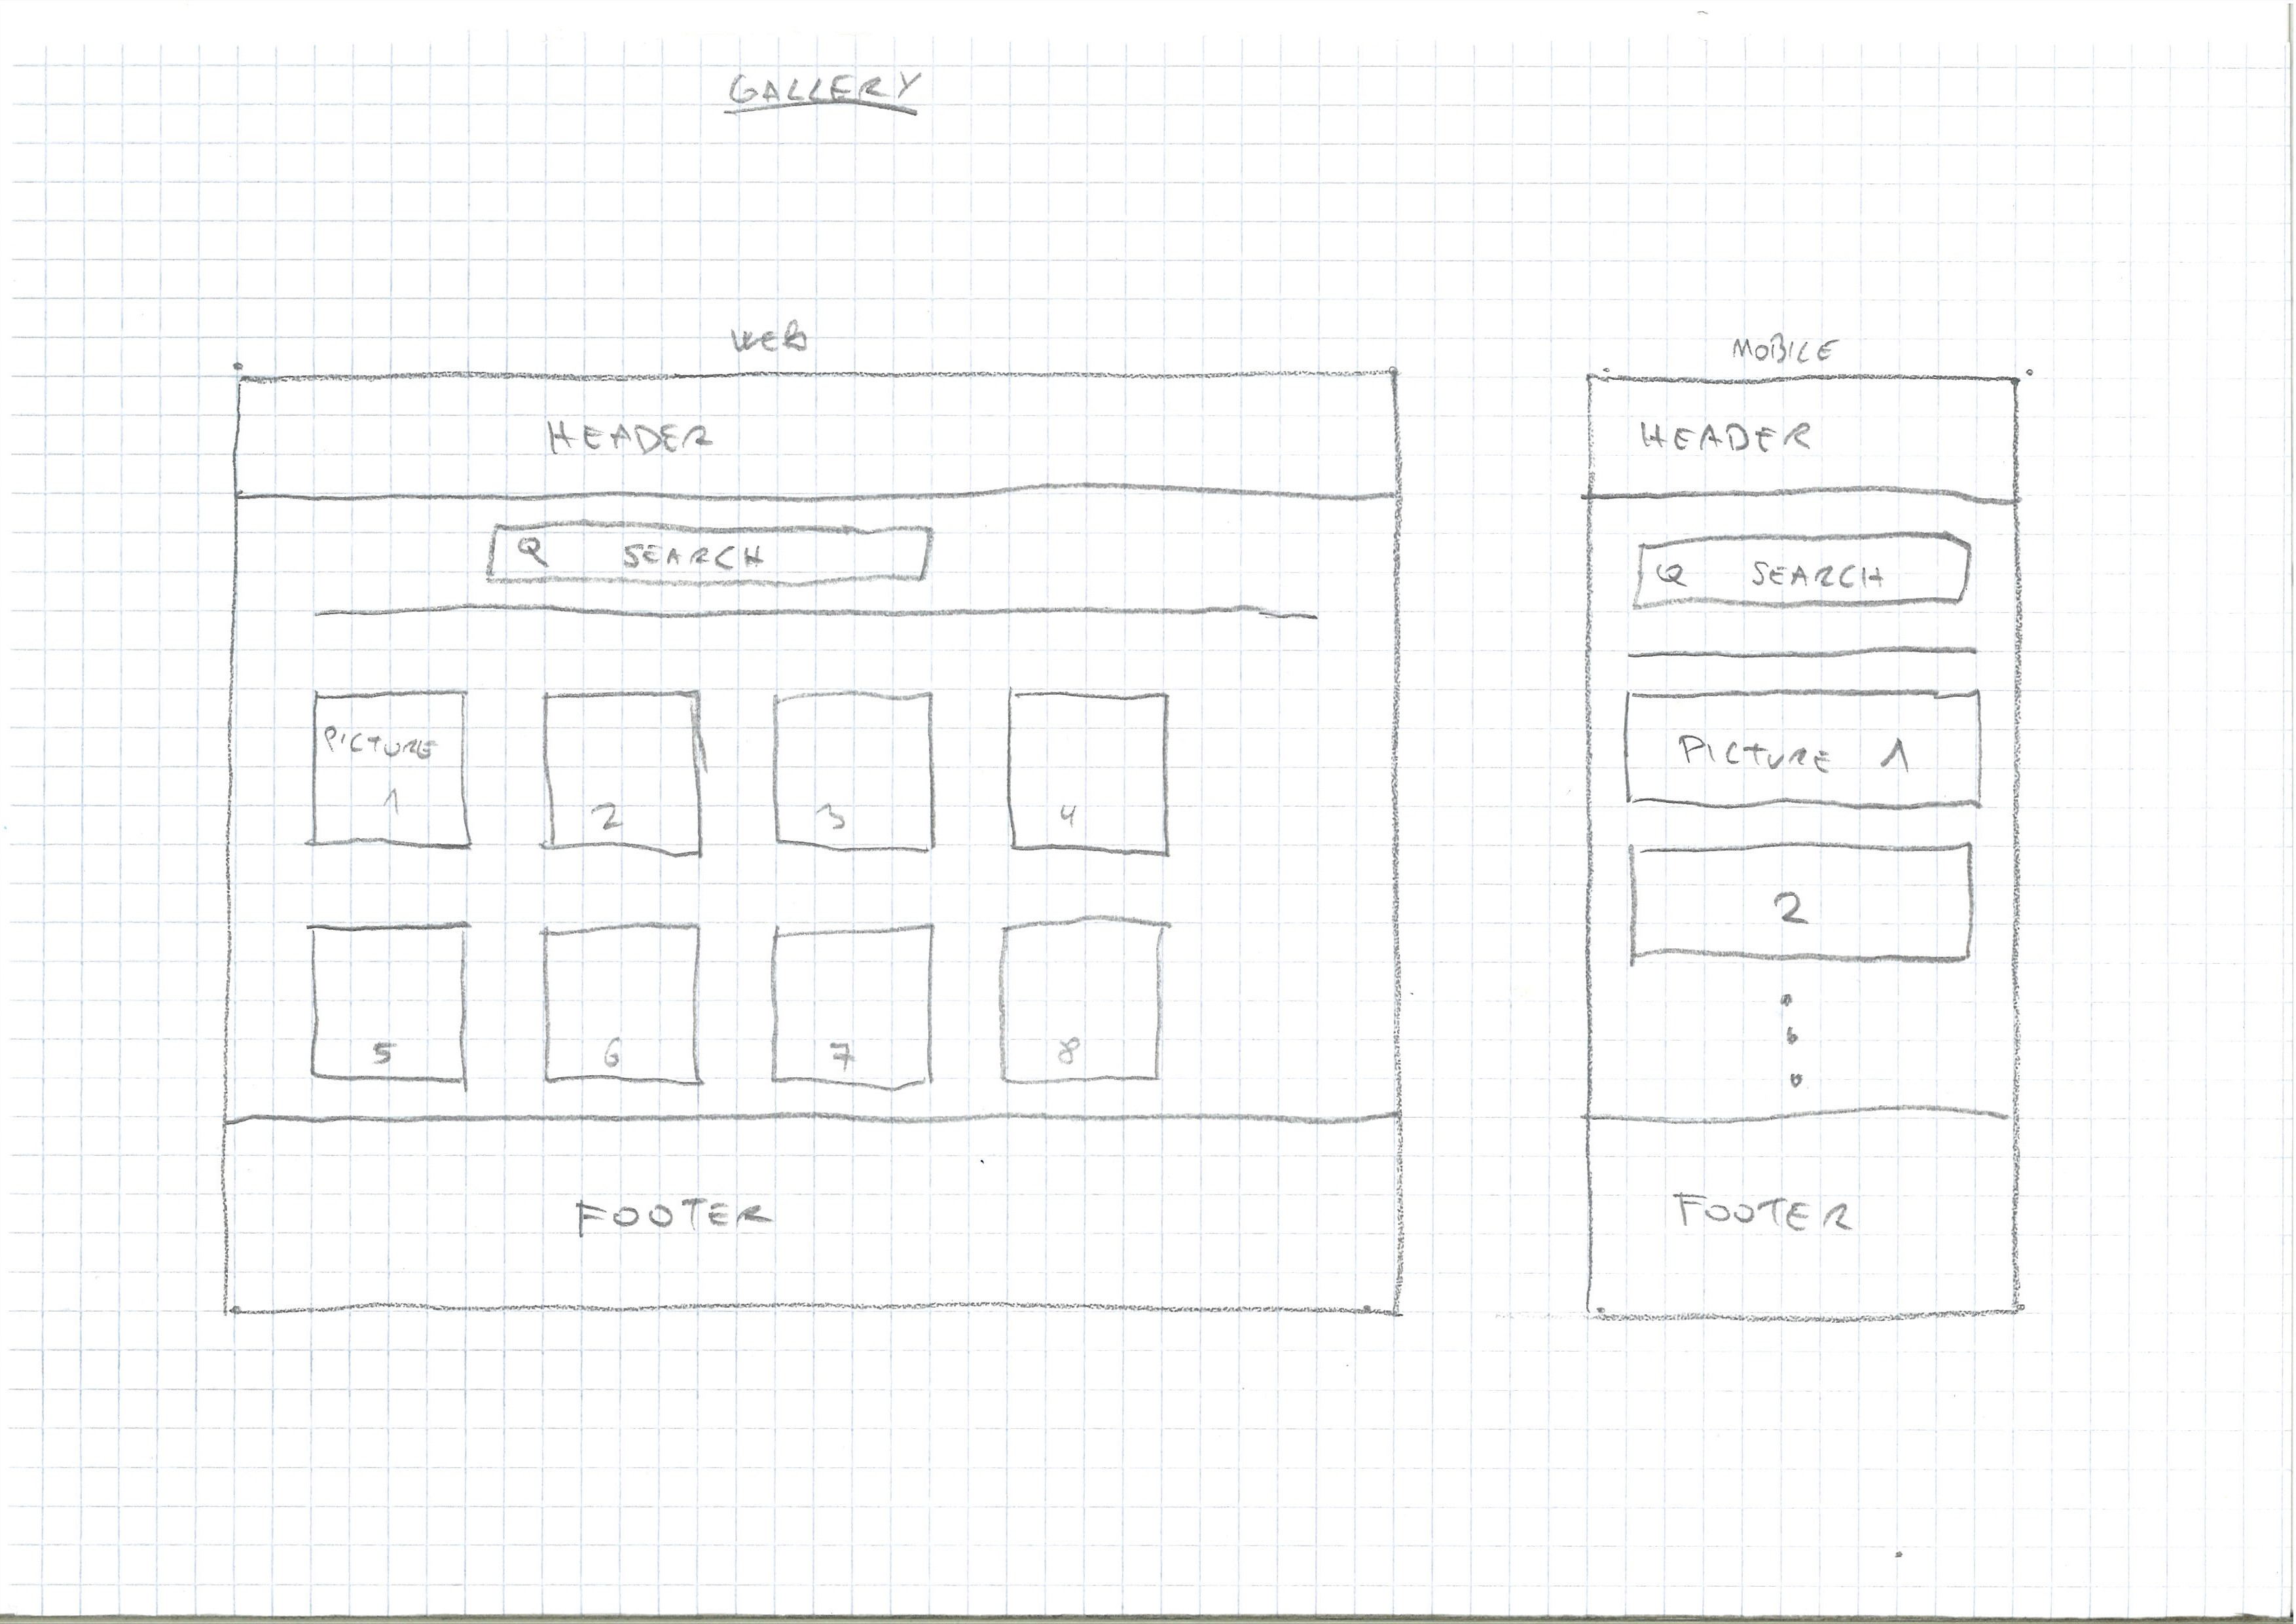 GALLERY
WEB
HEADER
SEARCH
PICTURE
1
2
3
4
5
6
7
8
FOOTER
MOBILE
HEADER
SEARCH
PICTURE 1
2
FOOTER